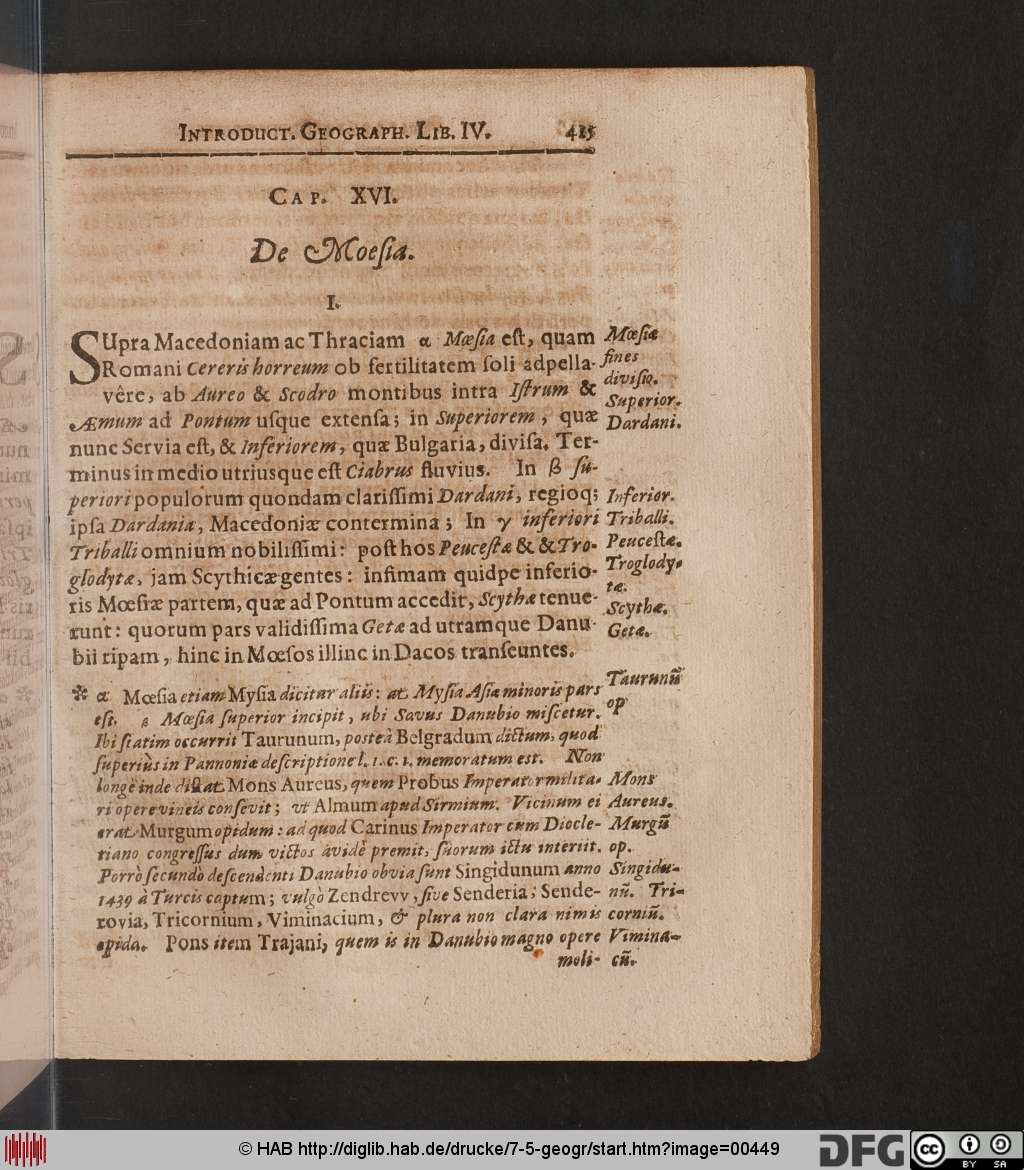 INTRODUCT. GEOGRAPH. LIB. IV. 415
CAP. XVI.
De Moeſia.
I.
SUpra Macedoniam ac Thraciam α Mœſia eſt, quam
Romani Cereris horreum ob fertilitatem ſoli adpella-
vêre, ab Aureo & Scodro montibus intra Iſtrum &
Æmum ad Pontum uſque extenſa; in Superiorem, quæ
nunc Servia eſt, & Inferiorem, quæ Bulgaria, diviſa. Ter-
minus in medio utriusque eſt Ciabrus fluvius. In β ſu-
periori populorum quondam clariſſimi Dardani, regioq;
ipſa Dardania, Macedoniæ contermina; In γ inferiori
Triballi omnium nobiliſſimi: poſt hos Peuceſtæ & & Tro-
glodytæ, jam Scythicæ gentes: infimam quidpe inferio-
ris Mœſiæ partem, quæ ad Pontum accedit, Scythæ tenue-
runt: quorum pars validiſſima Getæ ad utramque Danu-
bii ripam, hinc in Mœſos illinc in Dacos tranſeuntes.
Mœſiæ
fines
diviſio.
Superior.
Dardani.
Inferior.
Triballi.
Peuceſtæ.
Troglody-
tæ.
Scythæ.
Getæ.
* α Mœſia etiam Myſia dicitur aliis: at Myſia Aſiæ minoris pars
eſt. β Mœſia ſuperior incipit, ubi Savus Danubio miſcetur.
Ibi ſtatim occurrit Taurunum, poſteà Belgradum dictum, quod
ſuperiùs in Pannoniæ deſcriptione l. 1. c. 1. memoratum est. Non
longè inde diſtat Mons Aureus, quem Probus Imperator milita-
ri opere vineis conſevit; ut Almum apud Sirmium. Vicinum ei
erat Murgum opidum: ad quod Carinus Imperator cum Diocle-
tiano congreſſus dum victos avidè premit, ſuorum ictu interiit.
Porrò ſecundò deſcendenti Danubio obvia ſunt Singidunum anno
1439 à Turcis captum; vulgò Zendrevv, ſive Senderia; Sende-
rovia, Tricornium, Viminacium, & plura non clara nimis
opida. Pons item Trajani, quem is in Danubio magno opere
moli-
Taurunũ
op
Mons
Aureus.
Murgũ
op.
Singidu-
nũ. Tri-
corniũ.
Vimina-
cũ.
© HAB http://diglib.hab.de/drucke/7-5-geogr/start.htm?image=00449
DFG
cc
BY SA